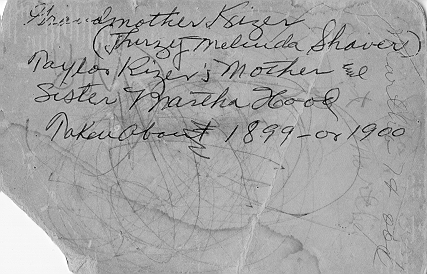 Grandmother Kizer
(Thurzy Melinda Shaver)
Taylor Kizer's Mother &
Sister Martha Hood
Taken About 1899-or 1900
Martha Hood